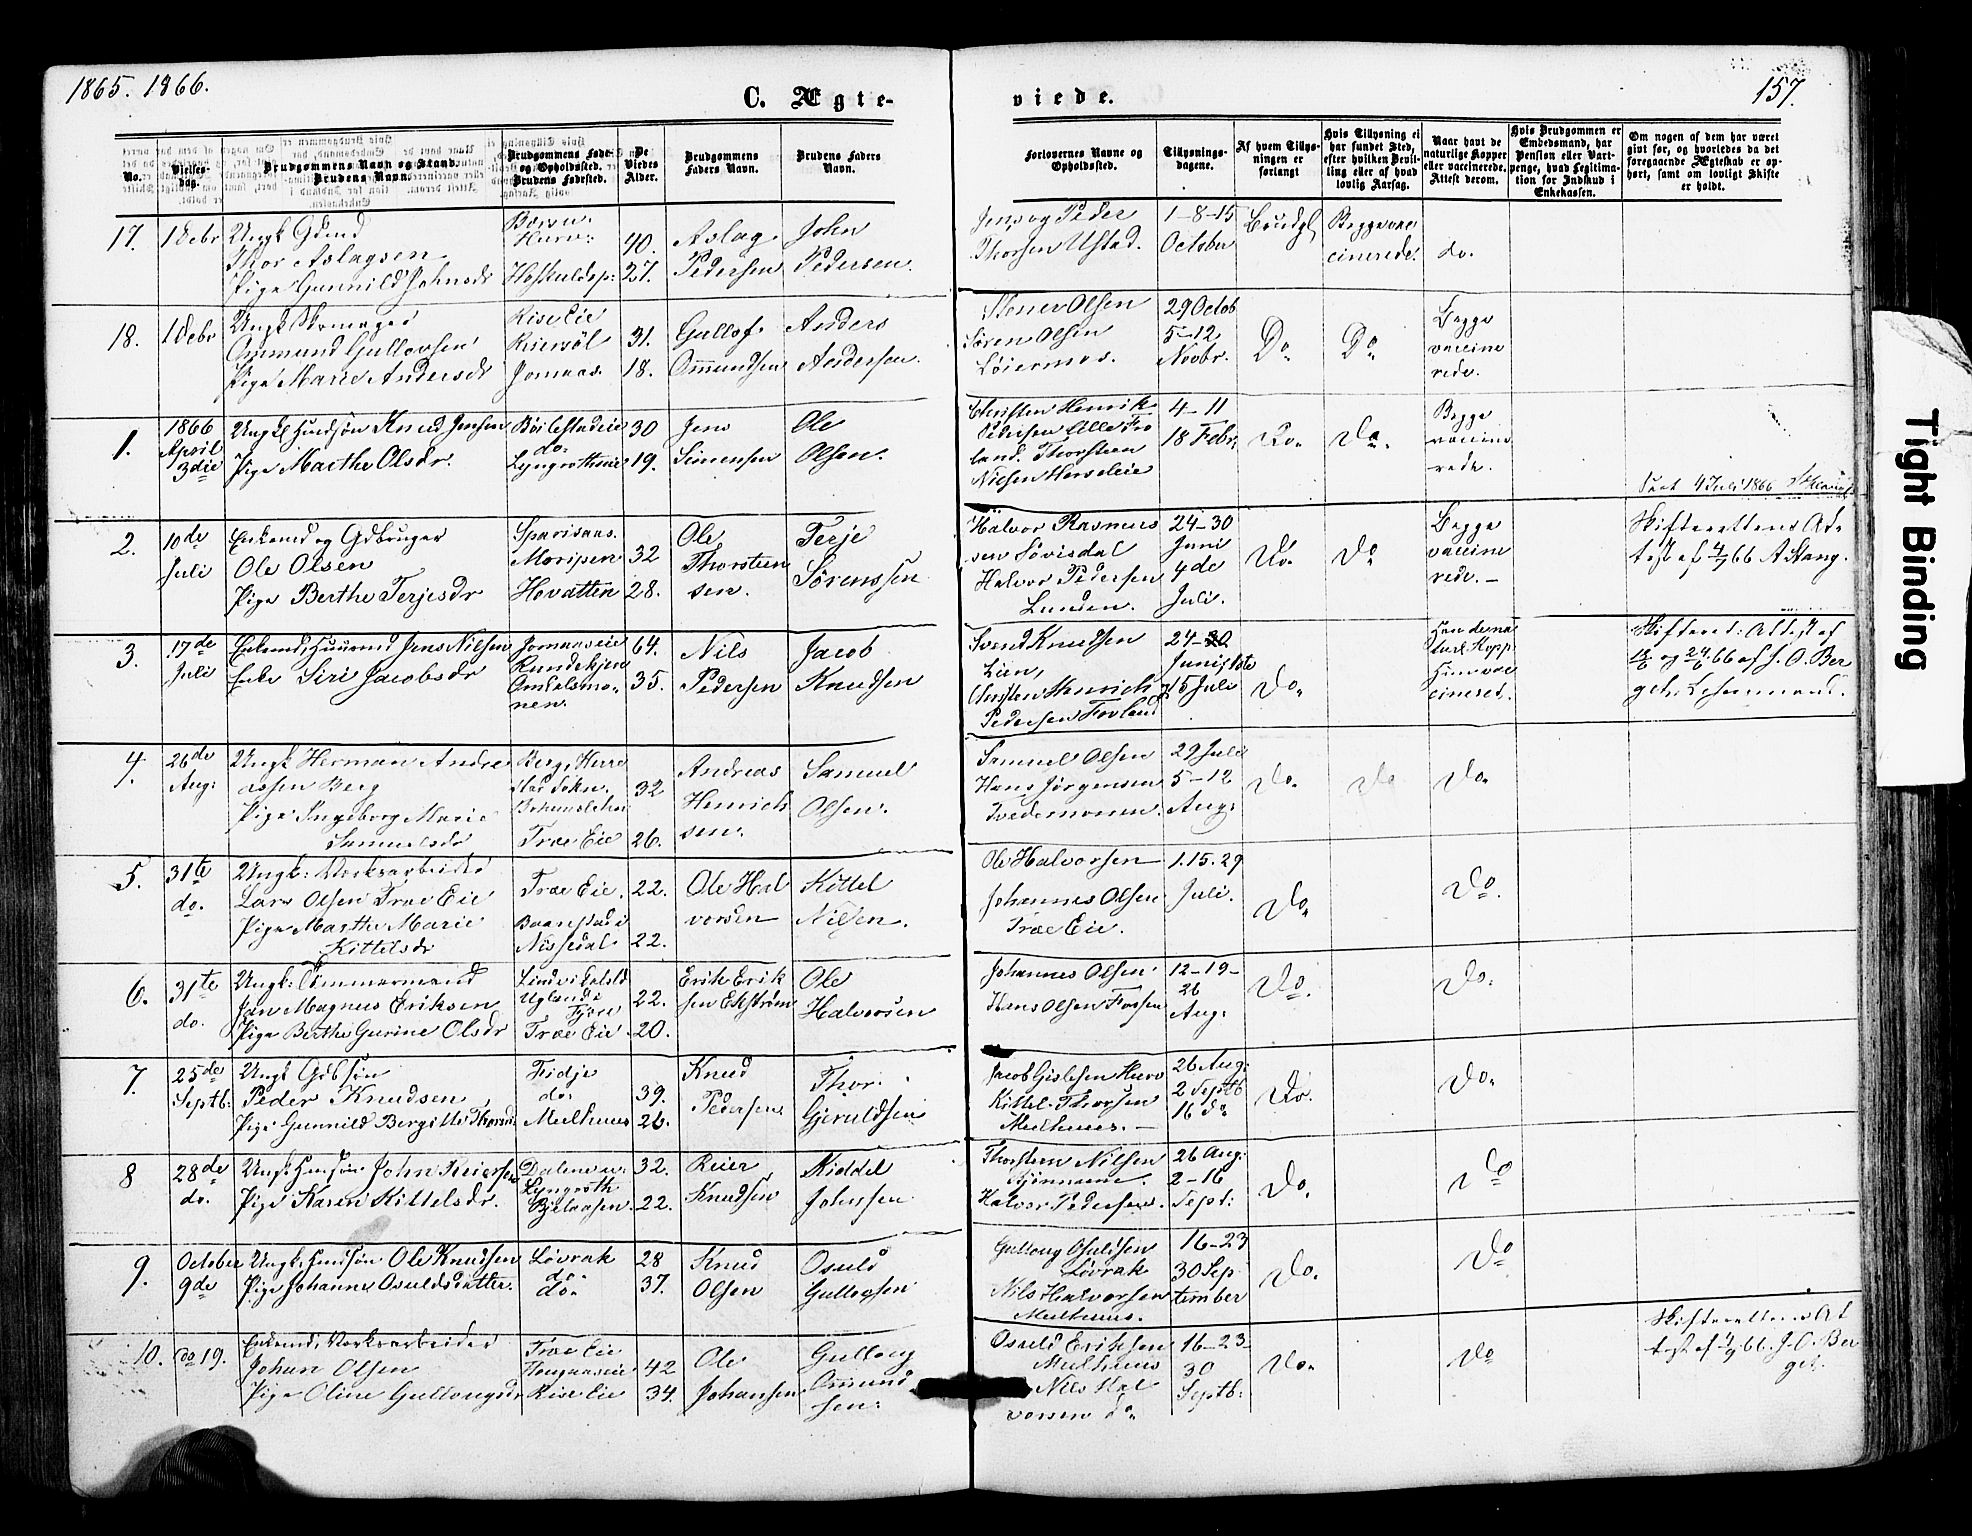 1865. 1866.
C. Ægte-
viede.
157.
No.
Vielses-
dag.
Brudgommens Navn og Stand.
Brudens Navn.
Brudgommens Føde-
og Opholdssted.
Brudens Fødested.
De
Viedes
Alder.
Brudgommens
Faders Navn.
Brudens Faders
Navn.
Forlovernes Navne og
Opholdssted.
Tillysnings-
dagene.
Af hvem Tillys-
ningen er
forlangt
Hvis Tillysning ei
har fundet Sted,
efter hvilken Bevil-
ling eller af hvad
lovlig Aarsag.
Naar havt de
naturlige Kopper
eller vaccinerede.
Attest derom.
Hvis Brudgommen er
Embedsmand, har
Pension eller Vart-
penge, hvad Legitima-
tion for Indskud i
Enkekassen.
Om nogen af dem har været
givt før, og hvorledes da det
foregaaende Ægteskab er op-
hørt, samt om lovligt Skifte
er holdt.
17.
Ungk Gdmd
Thor Aslagsen
Pige Gunnild Johnsdr
40.
27.
Aslag
Pedersen
John
Pedersen.
Jens og Peder
Thorsen Ustad.
1-8-15
October
Brudg.
Begge vac
cinerede.
do.
18.
Ungk
Ommund Gullovsen
Pige Marie Andersdr
Rise Eie
Jomaas.
31.
18.
Gullof
Ommundsen
Anders
Andersen.
Stener Olsen
Søren Olsen
29 Octob
5-12
Novbr.
Do
Do
Begge
vaccine
rede.
1.
1866
April
3die
Ungk Huusdsøn Knud Jensen
Pige Marthe Olsdr.
Bøilestadeie
do.
Lyngrotheie
30
19.
Jens
Simensen
Ole
Olsen.
Christen Henrik
Pedersen Fro
land. Thorsteen
Nielsen
4-11
18 Febr.
Do.
Do.
Begge
vaccine
rede.
4 Juli 1866
2.
10de
Juli
Enkemd og Gdbruger
Ole Olsen
Pige Berthe Terjesdr
Hovatten
32
28.
Ole
Thorsteen
sen.
Terje
Sørenssen
Halvor Rasmus
sen Løvisdal
Halvor Pedersen
Lunden.
24-30
Juni
4de
Juli.
Do.
Do
Begge
vaccine
rede.-
Skifterettens At-
test af 4/7 66 A Stang.
3.
17de
Juli
Enkemd, Huusmd Jens Nilsen
Enke Siri Jacobsdr
Jomaaseie
Omdalsmo-
nen.
64.
35.
Nils
Pedersen
Jacob
Knudsen
Svend Knudsen
Lien,
Christen Henrich
Pedersen Frøland
24-30
Juni
15 Juli
Do.
Skifteret: Attest af
66 af J. O. Ber
geh. Lehnsmand.
4.
26de
Aug:
Ungk Herman Andre
assen Berg
Pige Ingeborg Marie
Samuelsdr
Berg, Herre
Træ Eie
32
26.
Andreas
Henrich
sen.
Samuel
Olsen.
Samuel Olsen
Hans Jørgensen
Tvedemonen.
29 Juli
5-12
Aug:
Do.
Do
Do.
5.
31te
do.
Ungk: Værksarbeider
Lars Olsen Træ Eie
Pige Marthe Marie
Kittelsdr
Træ Eie
Nissedal
22.
22.
Ole Hal
vorsen
Kittel
Nilsen.
Ole Halvorsen
Johannes Olsen
Træ Eie.
1.15.29
Juli.
Do.
Do.
6.
31te
do.
Ungk: Tømmermand
Jan Magnus Eriksen
Pige Berthe Gurine Olsdr
Uglands
Fjære
Træ Eie
22.
20.
Erik Erik
sen Ekstrøm
Ole
Halvorsen
Johannes Olsen
Hans Olsen Fossen
12-19-
26
Aug:
Do.
Do.
7.
25de
Septb:
Ungk Gdbsøn
Peder Knudsen
Pige Gunnild Bergitte Thorsd.
Fidje
do.
Mulhuus
39.
26.
Knud
Pedersen
Thor
Gjeruldsen
Jacob Gislesen Huvo
Kittel Thorsen
Mulhuus.-
26 Aug:
2 Septb
16 do
Do.
Do.
8
28de
do.
Ungk Huusdsøn John Reiersen
Pige Karen Kittelsdr.
Lyngroth
32.
22.
Reier
Knudsen
Kiddel
Johnsen
Thorsteen Nilsen
Halvor Pedersen.
26 Aug:
2-16
Sept:
Do.
Do
9.
October
9de
Ungk, Huusdsøn Ole Knudsen
Pige Johanne Osuldsdatter.
Løvrak
do.
do.
28
37.
Knud
Olsen
Osuld
Gullogsen
Gulloug Osuldsen
Løvrak
Nils Halvorsen
Mulhuus.
16-23
30 Sep
tember
Do.
Do
10.
do 19.
Enkemd, Værksarbeider
Johan Olsen
Pige Oline Gullougsdr
Træ Eie
Rise Eie
42
34.
Ole
Johansen
Gulloug
Ommund
sen.
Osuld Eriksen
Mulhuus
Nils Hal
vorsen do.
16-23-
30
Septb:
Do.
Do
Skifterettens At
test af 66. J. O. Ber
geh.
Tight Binding